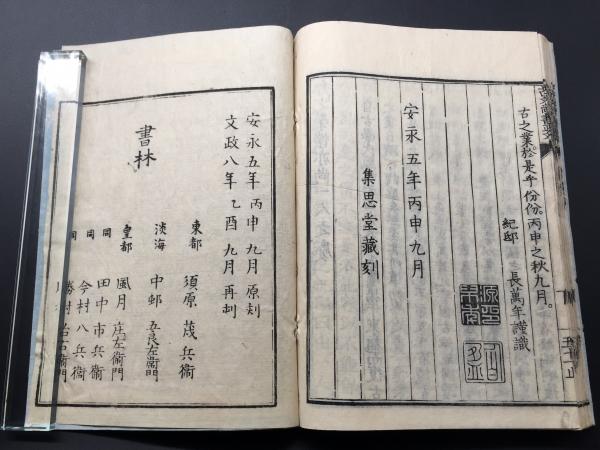 古之業。於是乎份份。丙申之秋九月。
紀邸　長萬年謹識
安永五年丙申九月
集思堂藏刻
安永五年丙申九月原刻
文政八年乙酉九月再刻
書林
東都　須原茂兵衞
淡海　中郵五良左衞門
皇都　風月庄左衞門
同　田中市兵衞
同　今村八兵衞
同　勝村治右衞門